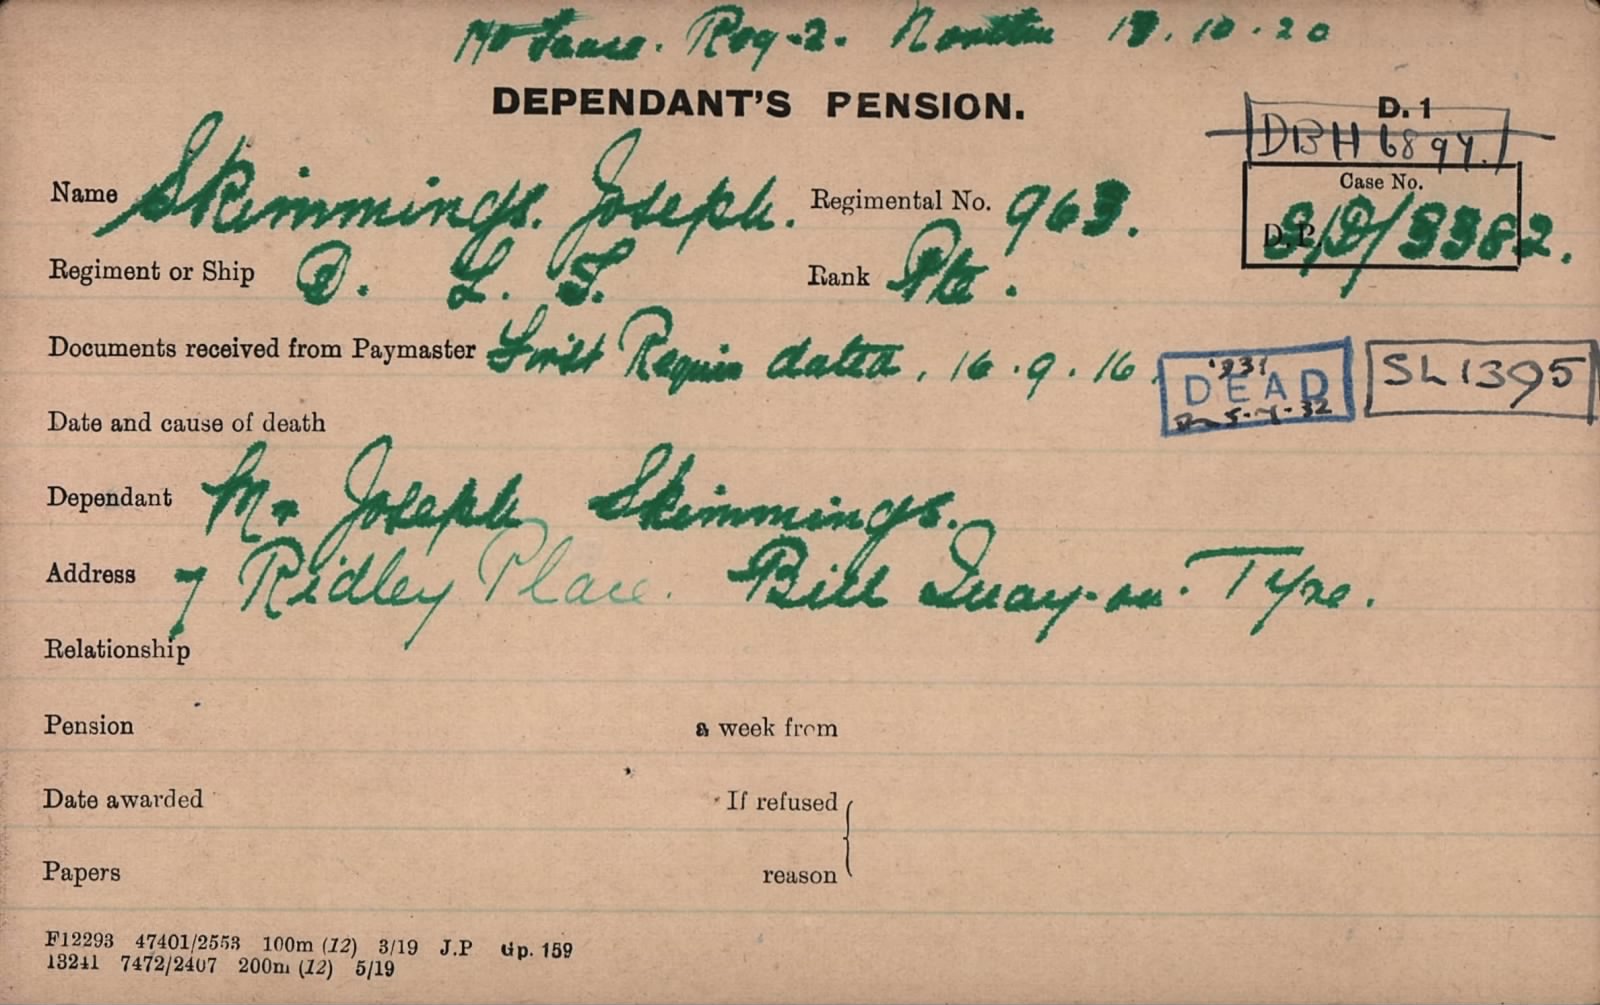 Reg. 2. 10. 20
DEPENDANT'S PENSION.
D. 1
DBH 6894.
Name Skimmings. Joseph. Regimental No. 963.
Case No.
D.P. S/D/3382.
Regiment or Ship D. L. I. Rank Pte.
Documents received from Paymaster First dated, 16.9.16.
DEAD
SL 1395
Date and cause of death
Dependant Mr Joseph Skimmings.
Address 7 Ridley Place. Bill Quay-on-Tyne.
Relationship
Pension a week from
Date awarded If refused
Papers reason
F12293 47401/2553 100m (12) 3/19 J.P Gp. 159
13241 7472/2407 200m (12) 5/19